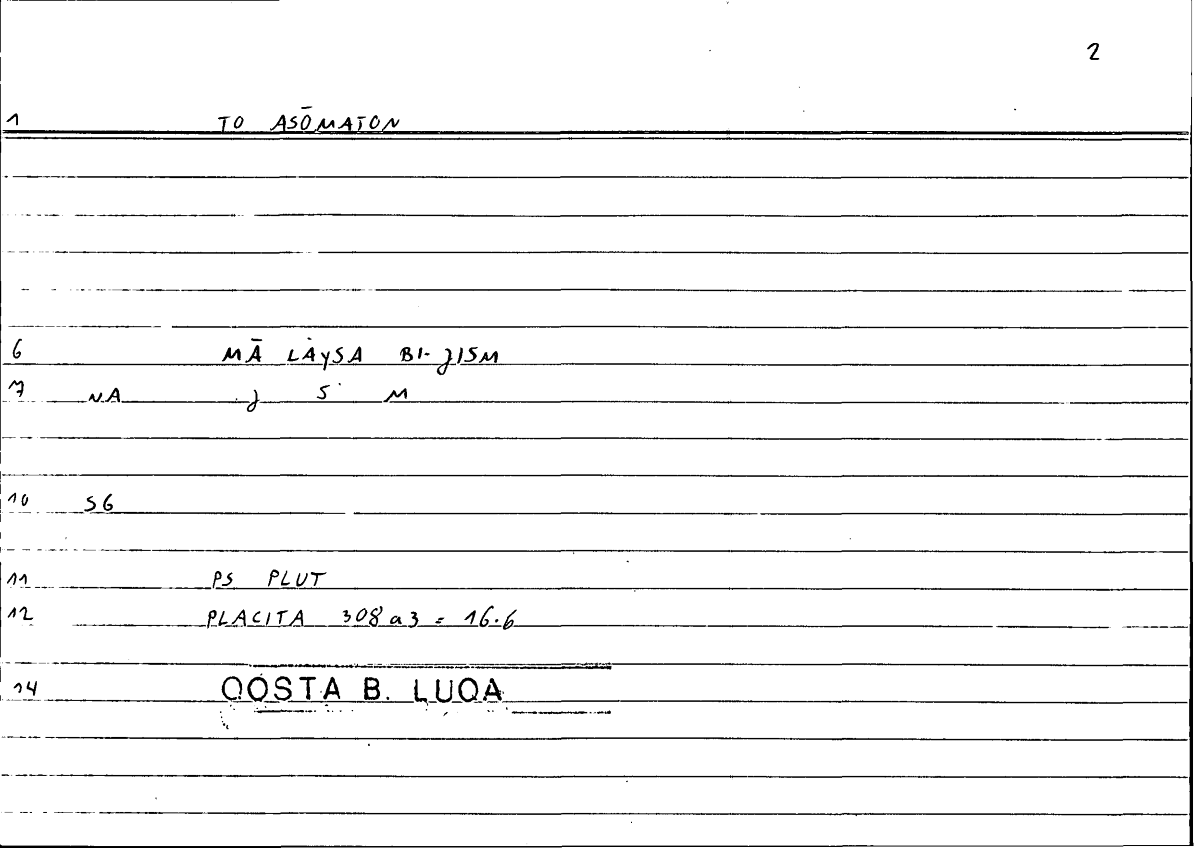 2
1 TO ASŌMATON
6 MĀ LAYSA BI-JISM
7 NA J S M
10 SG
11 PS PLUT
12 PLACITA 308a3 = 16.6
14 QOSTA B. LUQA